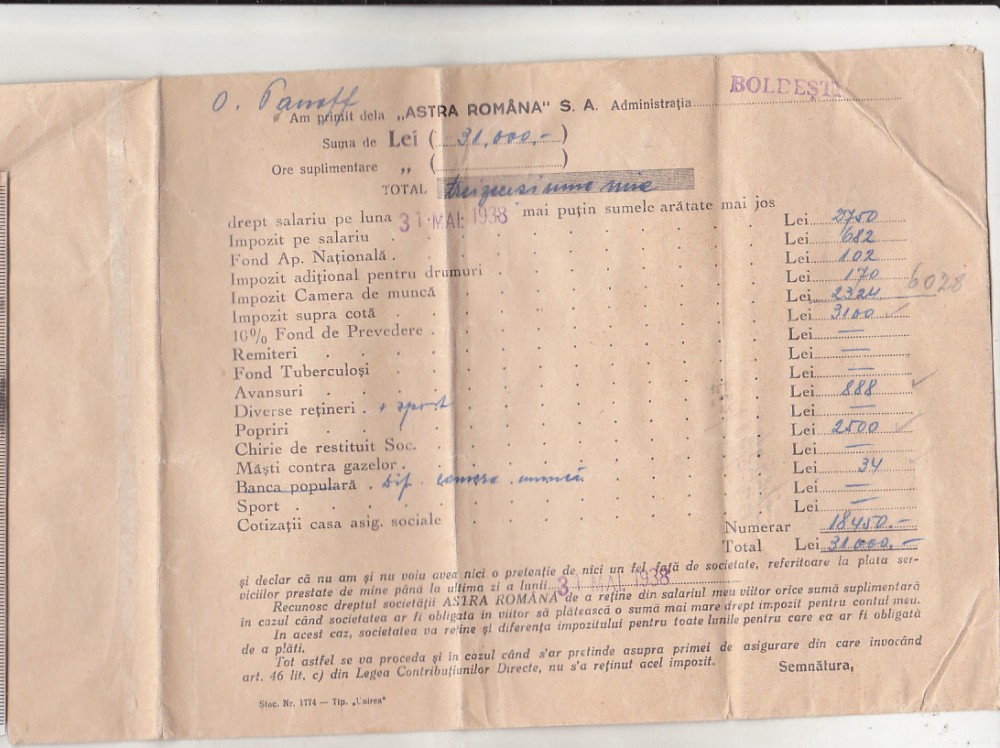 O. Panoff
BOLDEȘTI
Am primit dela „ASTRA ROMÂNA" S. A. Administrația
Suma de Lei ( 31,000,- )
Ore suplimentare „ ( )
TOTAL treizecisiuna mie
drept salariu pe luna 31 MAI. 1938 mai puțin sumele arătate mai jos
Impozit pe salariu Lei 2750
Fond Ap. Națională Lei 682
Impozit adițional pentru drumuri Lei 102
Impozit Camera de muncă Lei 170
Impozit supra cotă Lei 2324 6028
10% Fond de Prevedere Lei 3100 ✓
Remiteri Lei —
Fond Tuberculoși Lei —
Avansuri Lei —
Diverse rețineri + sport Lei 888 ✓
Popriri Lei —
Chirie de restituit Soc. Lei 2500 ✓
Măști contra gazelor Lei —
Banca populară Dif. camera muncă Lei 34
Sport Lei —
Cotizații casa asig. sociale Lei —
Numerar 18450.-
Total Lei 31000.-
și declar că nu am și nu voiu avea nici o pretenție de nici un fel față de societate, referitoare la plata ser-
viciilor prestate de mine până la ultima zi a lunii 31 MAI. 1938
Recunosc dreptul societății ASTRA ROMÂNA de a reține din salariul meu viitor orice sumă suplimentară
în cazul când societatea ar fi obligată în viitor să plătească o sumă mai mare drept impozit pentru contul meu.
In acest caz, societatea va reține și diferența impozitului pentru toate lunile pentru care ea ar fi obligată
de a plăti.
Tot astfel se va proceda și în cazul când s'ar pretinde asupra primei de asigurare din care invocând
art. 46 lit. c) din Legea Contribuțiunilor Directe, nu s'a reținut acel impozit.
Semnătura,
Stoc. Nr. 1774 — Tip. „Unirea"